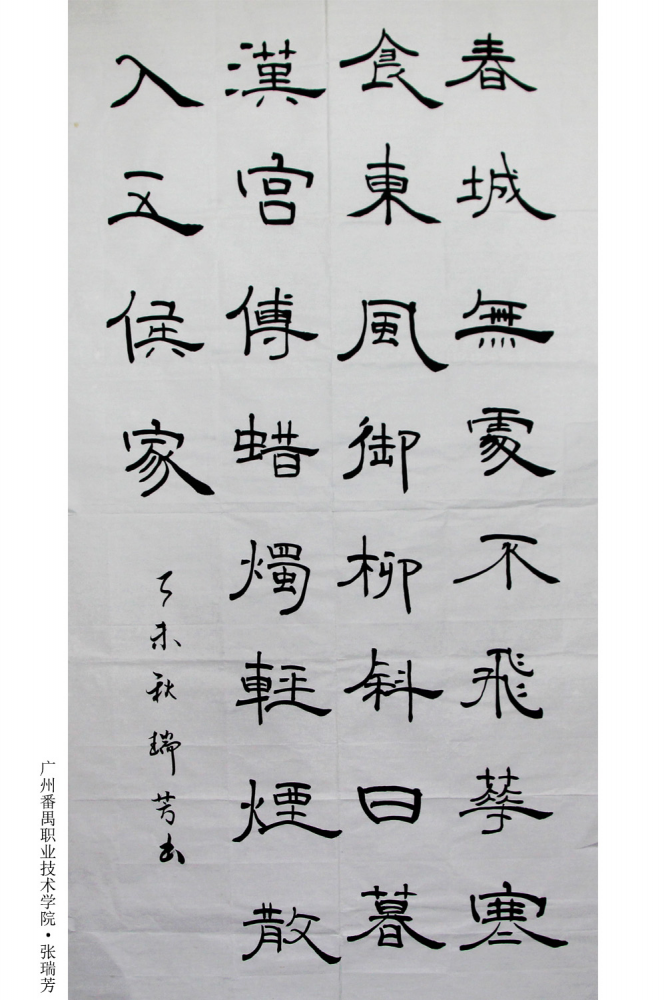 春城無處不飛華寒
食東風御柳斜日暮
漢宮傳蜡燭輕煙散
入五侯家
丁未秋瑞芳书
广州番禺职业技术学院·张瑞芳